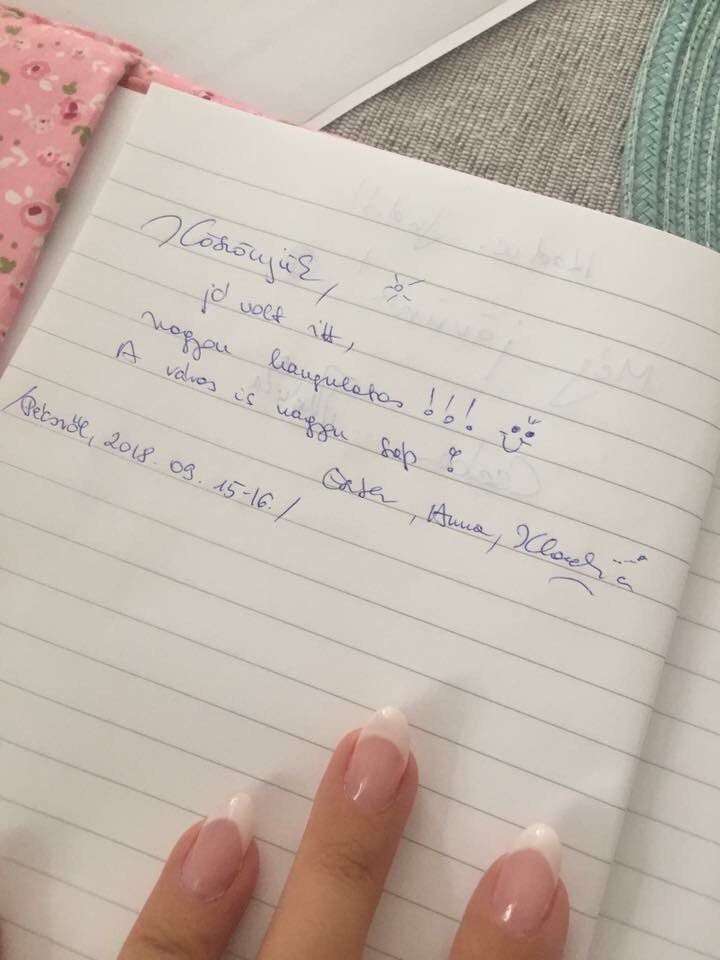 Köszönjük,
jó volt itt,
nagyon hangulatos!!!
A város is nagyon szép!
Eszter, Anna, Klaudia
/Pécsvár, 2018. 09. 15-16./